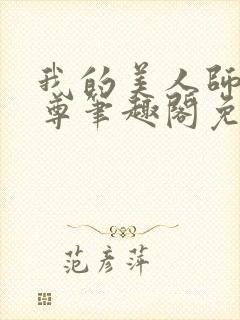 我的美人師
尊筆趣閣免
范彥萍